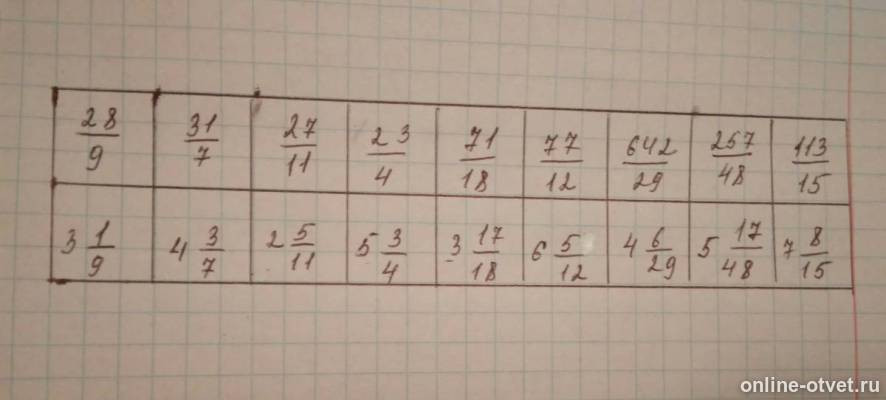 28/9 31/7 27/11 23/4 71/18 77/12 642/29 257/48 113/15
3 1/9 4 3/7 2 5/11 5 3/4 3 17/18 6 5/12 4 6/29 5 17/48 7 8/15
online-otvet.ru